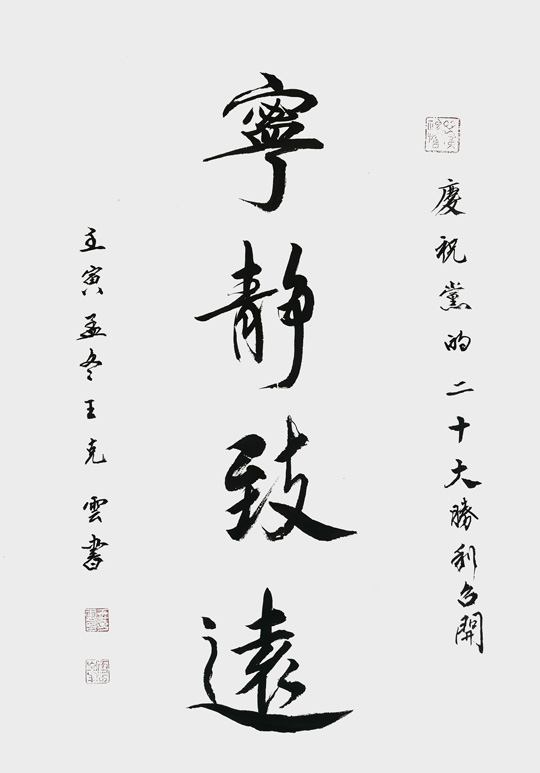 慶祝黨的二十大勝利召開
寧靜致遠
壬寅孟冬王克雲書